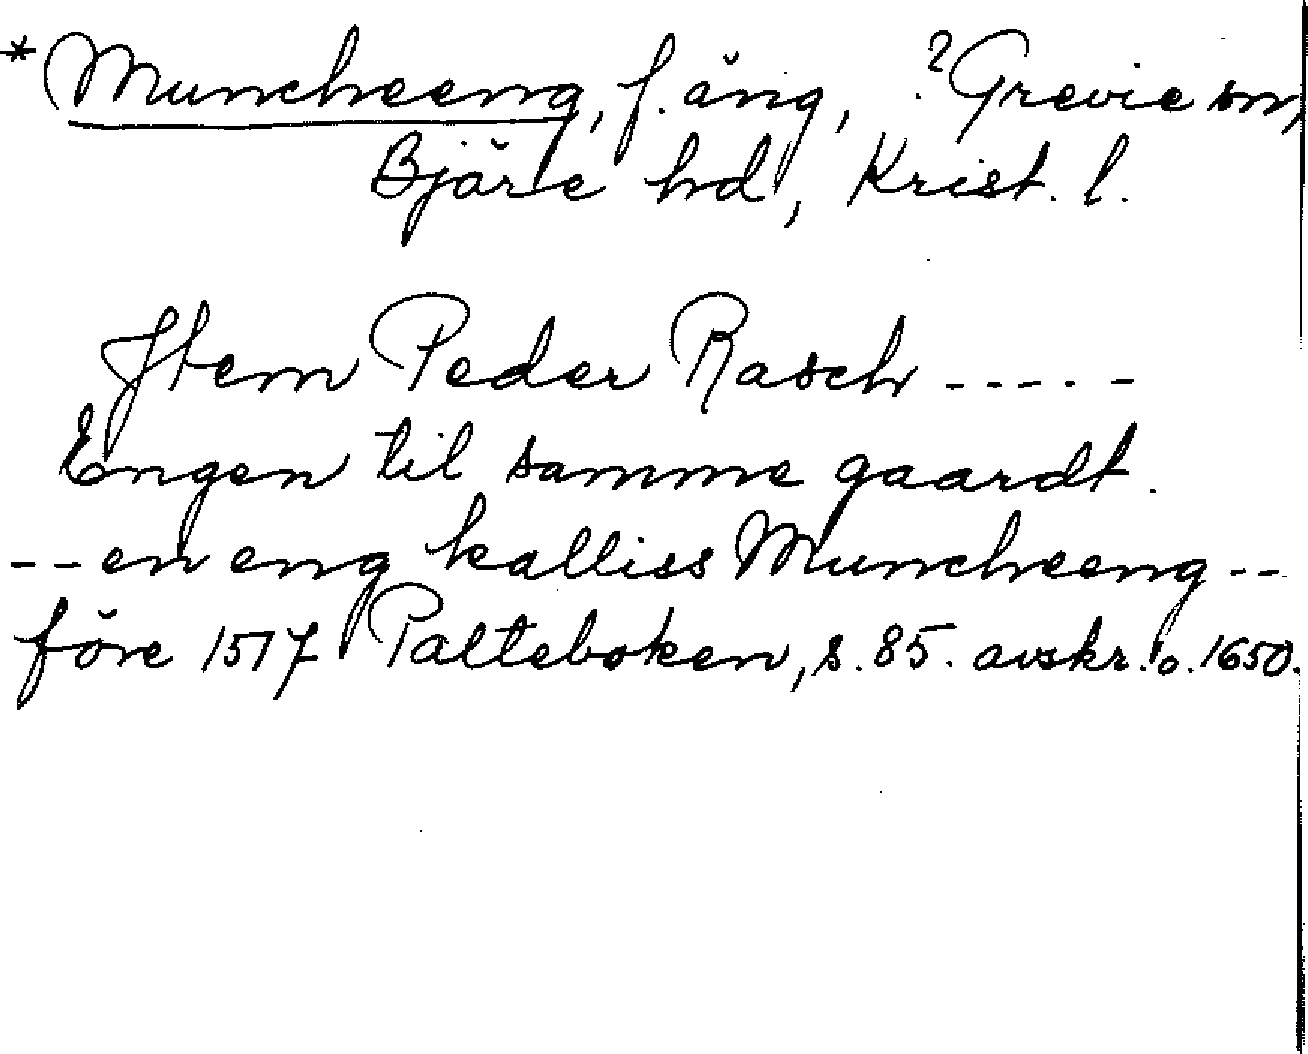 *Muncheeng, f. äng, ?Grevie sn,
Bjäre hd, Krist. l.
Jtem Peder Rasch -----
Engen til samme gaardt.
--en eng kalliss Muncheeng--
före 1517 Palteboken, s. 85. avskr. o. 1650.